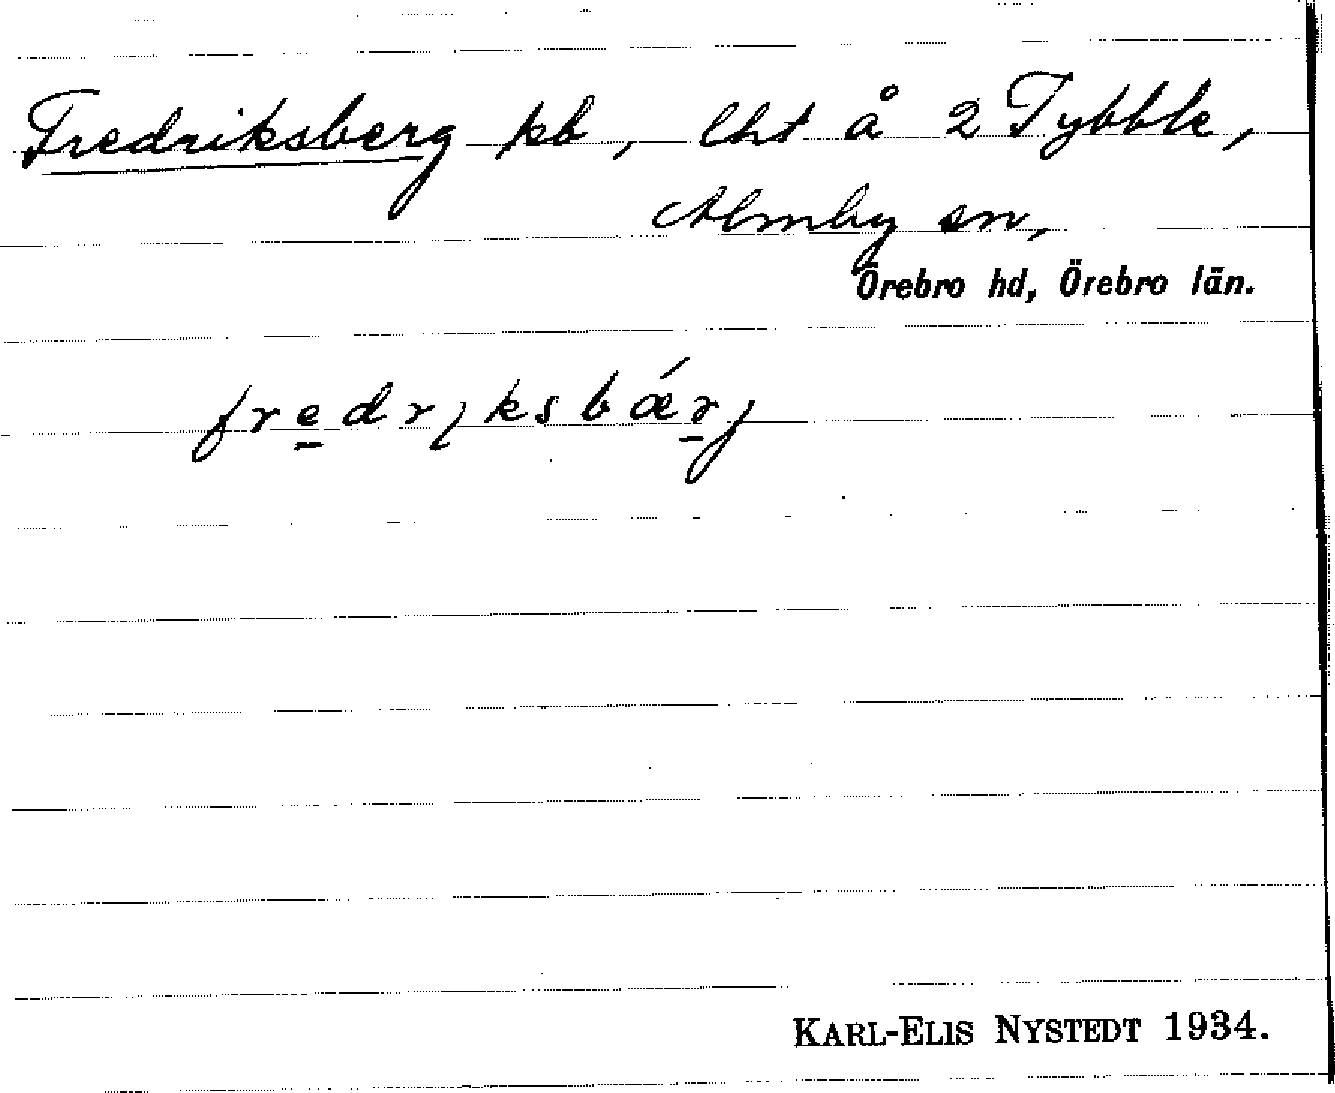 Fredriksberg kb, lht å 2 Tybble,
Almby sn,
Örebro hd, Örebro län.
fredrıksbǽrj
KARL-ELIS NYSTEDT 1934.